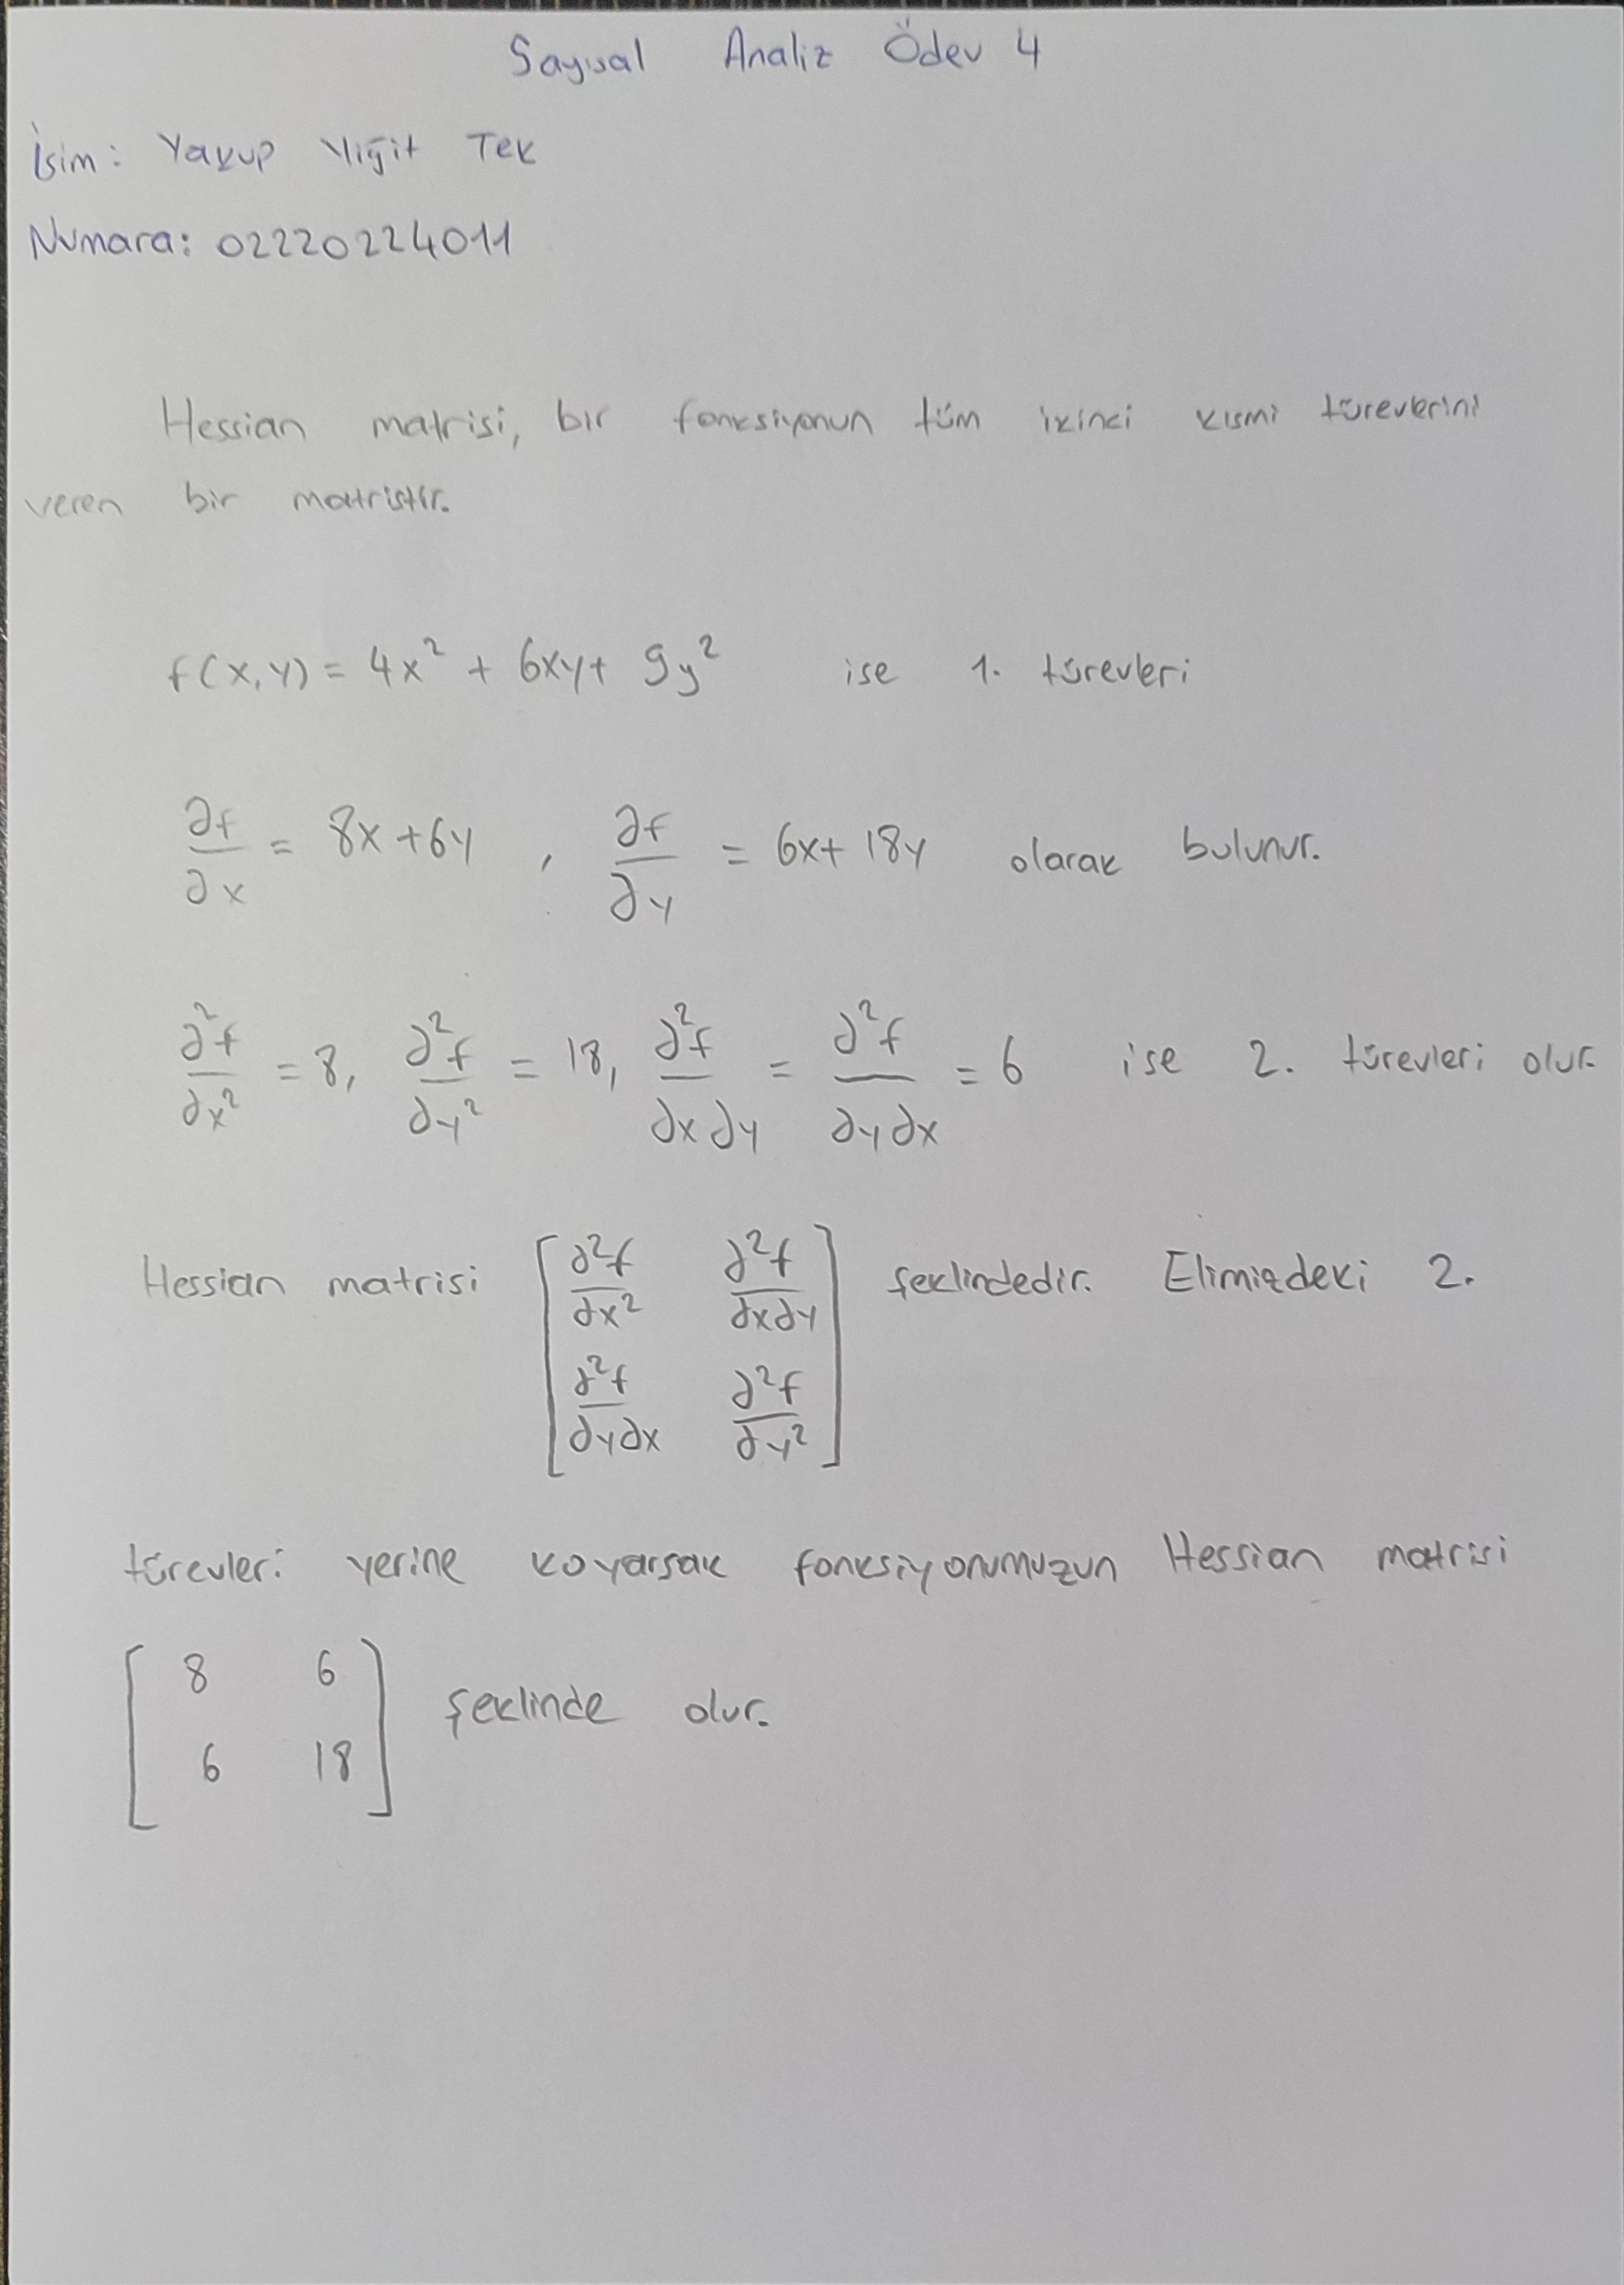 Sayısal Analiz Ödev 4
İsim: Yakup Yiğit Tek
Numara: 02220224011
Hessian matrisi, bir fonksiyonun tüm ikinci kısmi türevlerini
veren bir matristir.
f(x,y) = 4x² + 6xy + 9y² ise 1. türevleri
∂f/∂x = 8x + 6y , ∂f/∂y = 6x + 18y olarak bulunur.
∂²f/∂x² = 8, ∂²f/∂y² = 18, ∂²f/∂x∂y = ∂²f/∂y∂x = 6 ise 2. türevleri olur.
Hessian matrisi [∂²f/∂x² ∂²f/∂x∂y] şeklindedir. Elimizdeki 2.
[∂²f/∂y∂x ∂²f/∂y²]
türevleri yerine koyarsak fonksiyonumuzun Hessian matrisi
[8 6] şeklinde olur.
[6 18]